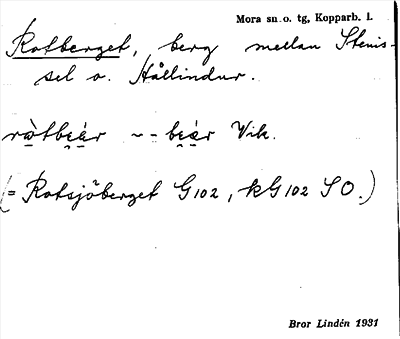 Mora sn. o. tg, Kopparb. l.
Rotberget, berg mellan Stenis-
sel o. Hållindur.
ràtbe̯á̯r – – be̯á̯r Vik.
(= Rotsjöberget G102, kG102 SO.)
Bror Lindén 1931